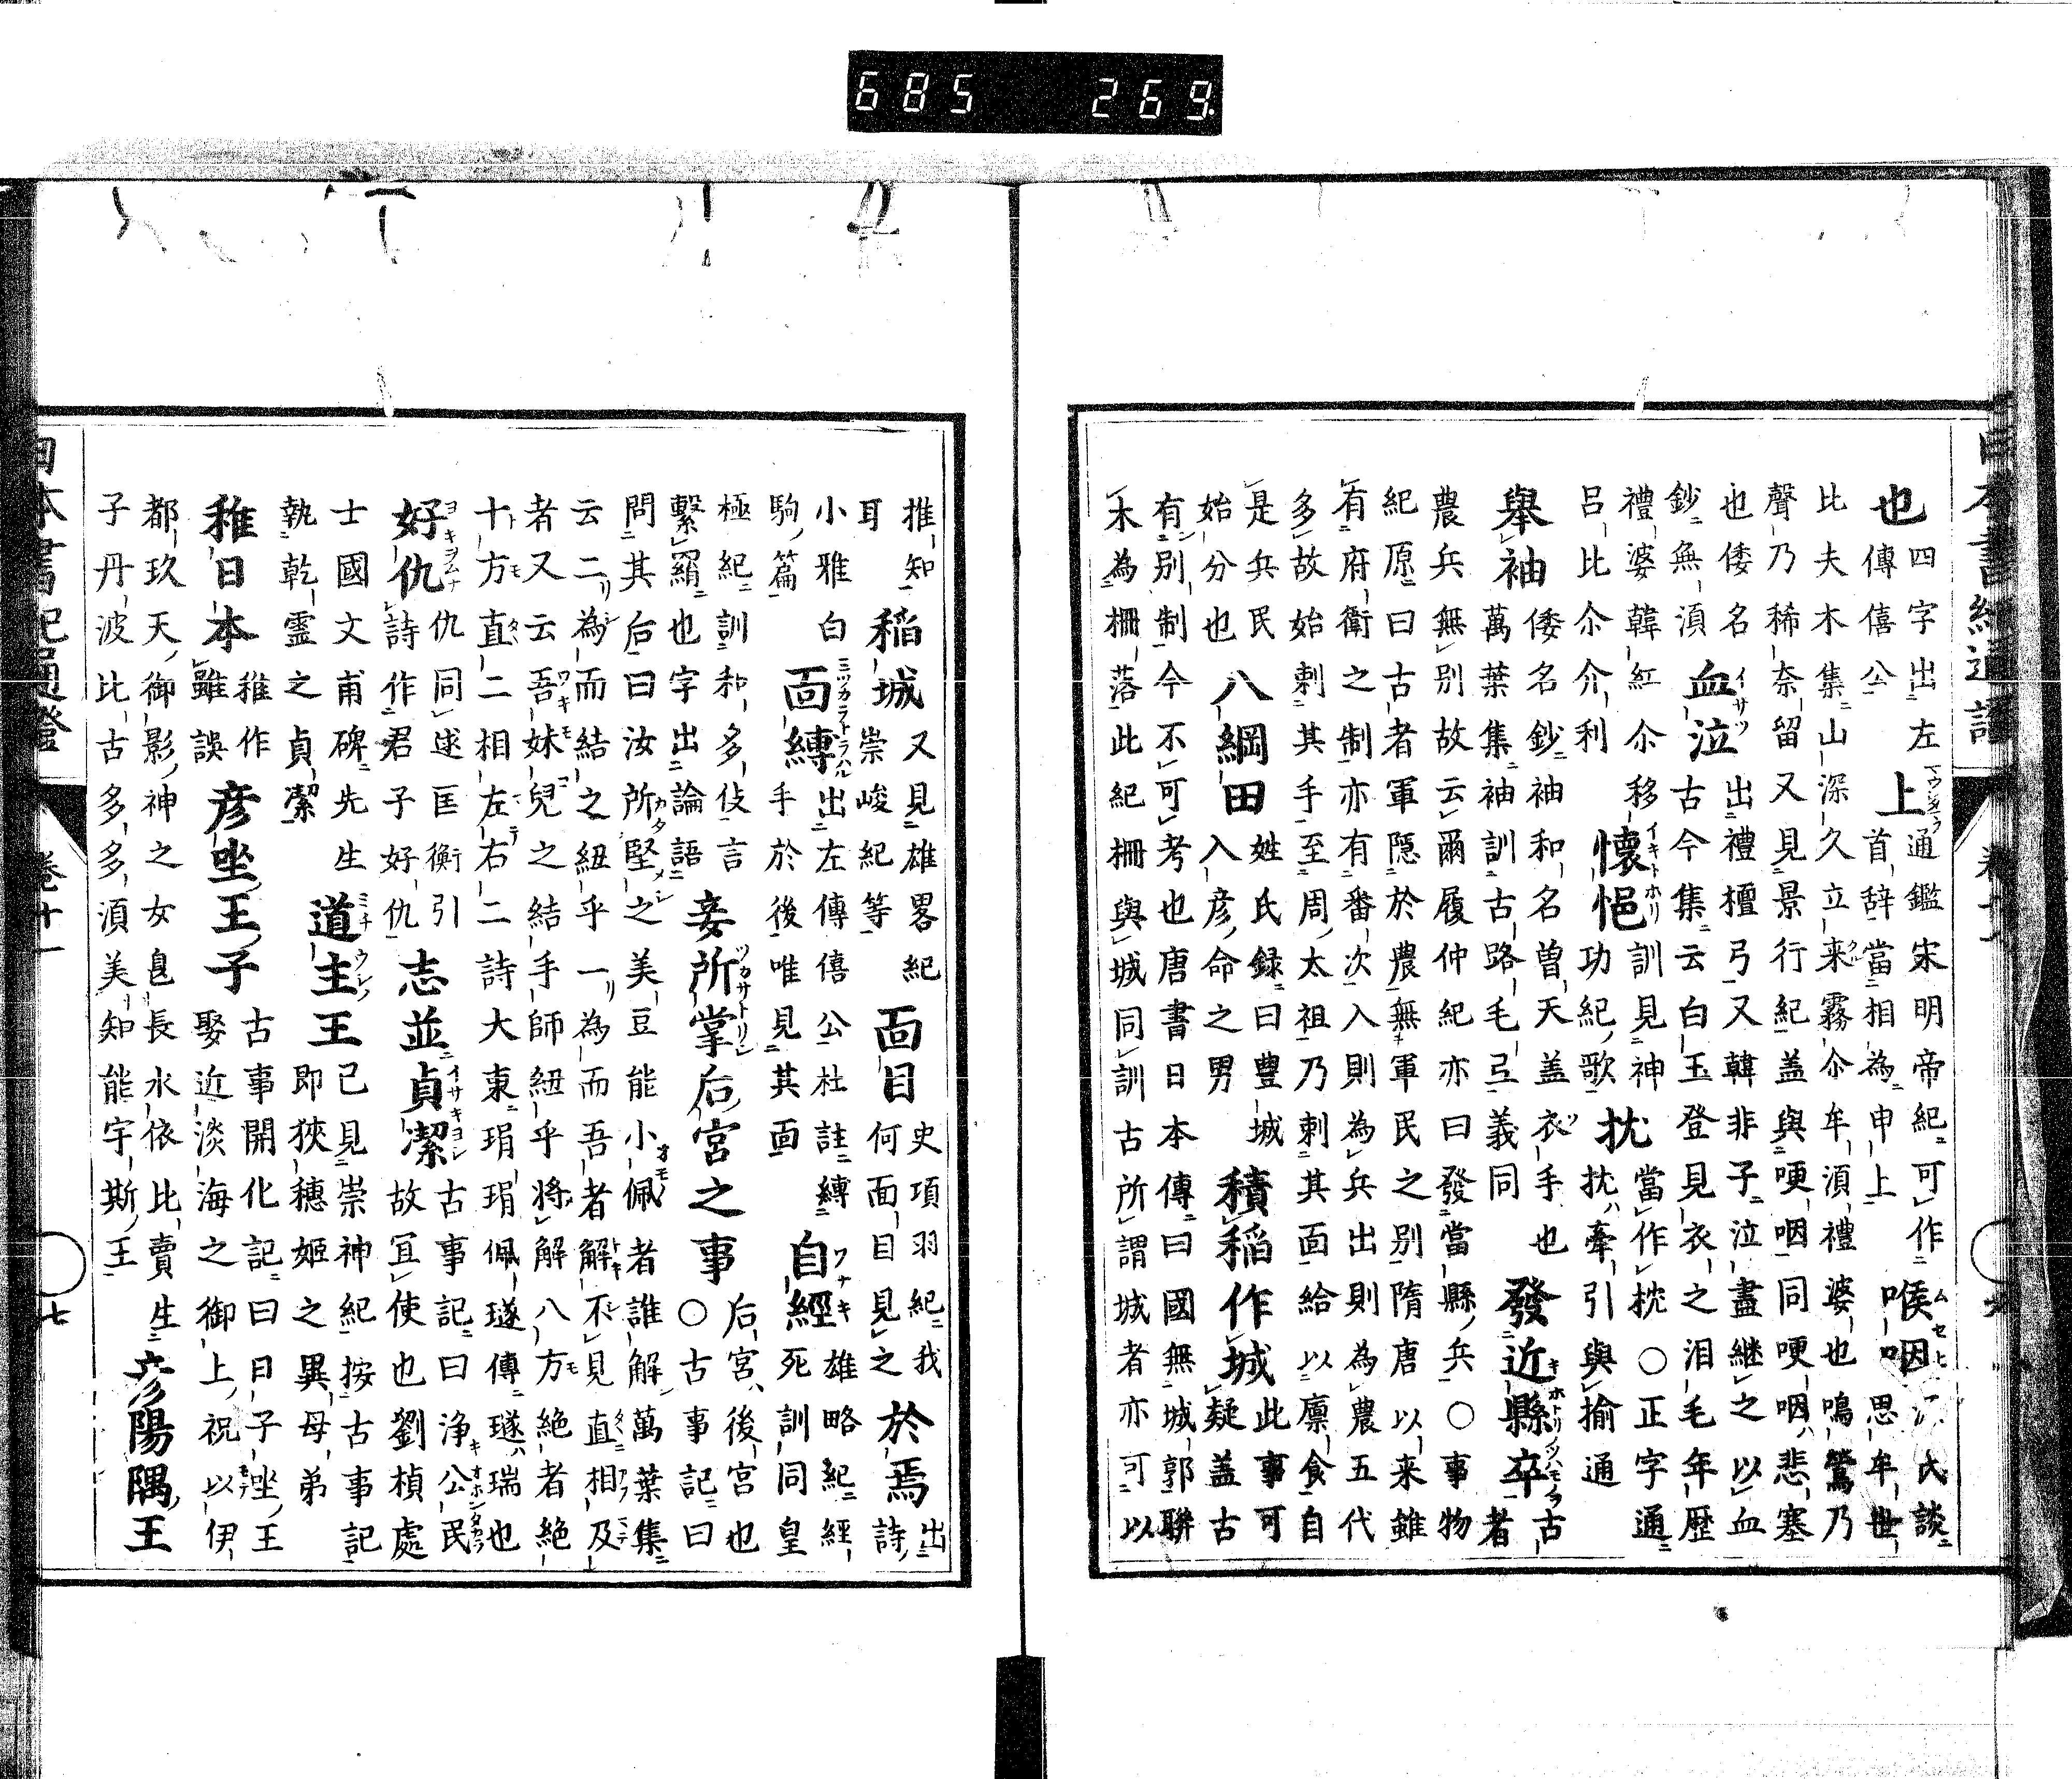 685 269
日本書紀通證
也四字出左
傳僖公上通鑑宋明帝紀可作
首辞當相為申上喉咽氏談
思牟世
比夫木集山深久立来霧尒牟湏禮婆也鳴鶯乃
聲乃稀奈留又見景行紀盖與哽咽同哽咽悲塞
也倭名
鈔無湏血泣出禮檀弓又韓非子泣盡継之以血
古今集云白玉登見衣之泪毛年歴
禮婆韓紅尒移
呂比尒介利懐悒訓見神
功紀歌抌當作枕○正字通
抌牽引與揄通
舉袖倭名鈔袖和名曽天盖衣手也
萬葉集袖訓古路毛弖義同發近縣卒古
者
農兵無別故云爾履仲紀亦曰發當縣兵○事物
紀原曰古者軍隠於農無軍民之別隋唐以来雖
有府衛之制亦有番次入則為兵出則為農五代
多故始刺其手至周太祖乃刺其面給以廩食自
是兵民
始分也八綱田姓氏録曰豊城
入彦命之男積稲作城此事可
疑盖古
有別制今不可考也唐書日本傳曰國無城郭聯
木為柵落此紀柵與城同訓古所謂城者亦可以
推知
耳稲城又見雄畧紀
崇峻紀等面目史項羽紀我
何面目見之於焉出
詩
小雅白
駒篇面縛出左傳僖公杜註縛
手於後唯見其面自經雄略紀經
死訓同皇
極紀訓和多伎言
繋羂也字出論語妾所掌后宮之事后宮後宮也
○古事記曰
問其后曰汝所堅之美豆能小佩者誰解萬葉集
云二為而結之紐乎一為而吾者解不見直相及
者又云吾妹兒之結手師紐乎将解八方絶者絶
十方直二相左右二詩大東琄琄佩璲傳璲瑞也
好仇仇同逑匡衡引
詩作君子好仇志並貞潔古事記曰浄公民
故宜使也劉楨處
士國文甫碑先生
執乾霊之貞潔道主王已見崇神紀按古事記
即狹穗姫之異母弟
稚日本稚作
雖誤彦坐王子古事開化記曰日子坐王
娶近淡海之御上祝以伊
都玖天御影神之女息長水依比賣生
子丹波比古多多湏美知能宇斯王彦陽隅王
日本書紀通證 卷十一 七